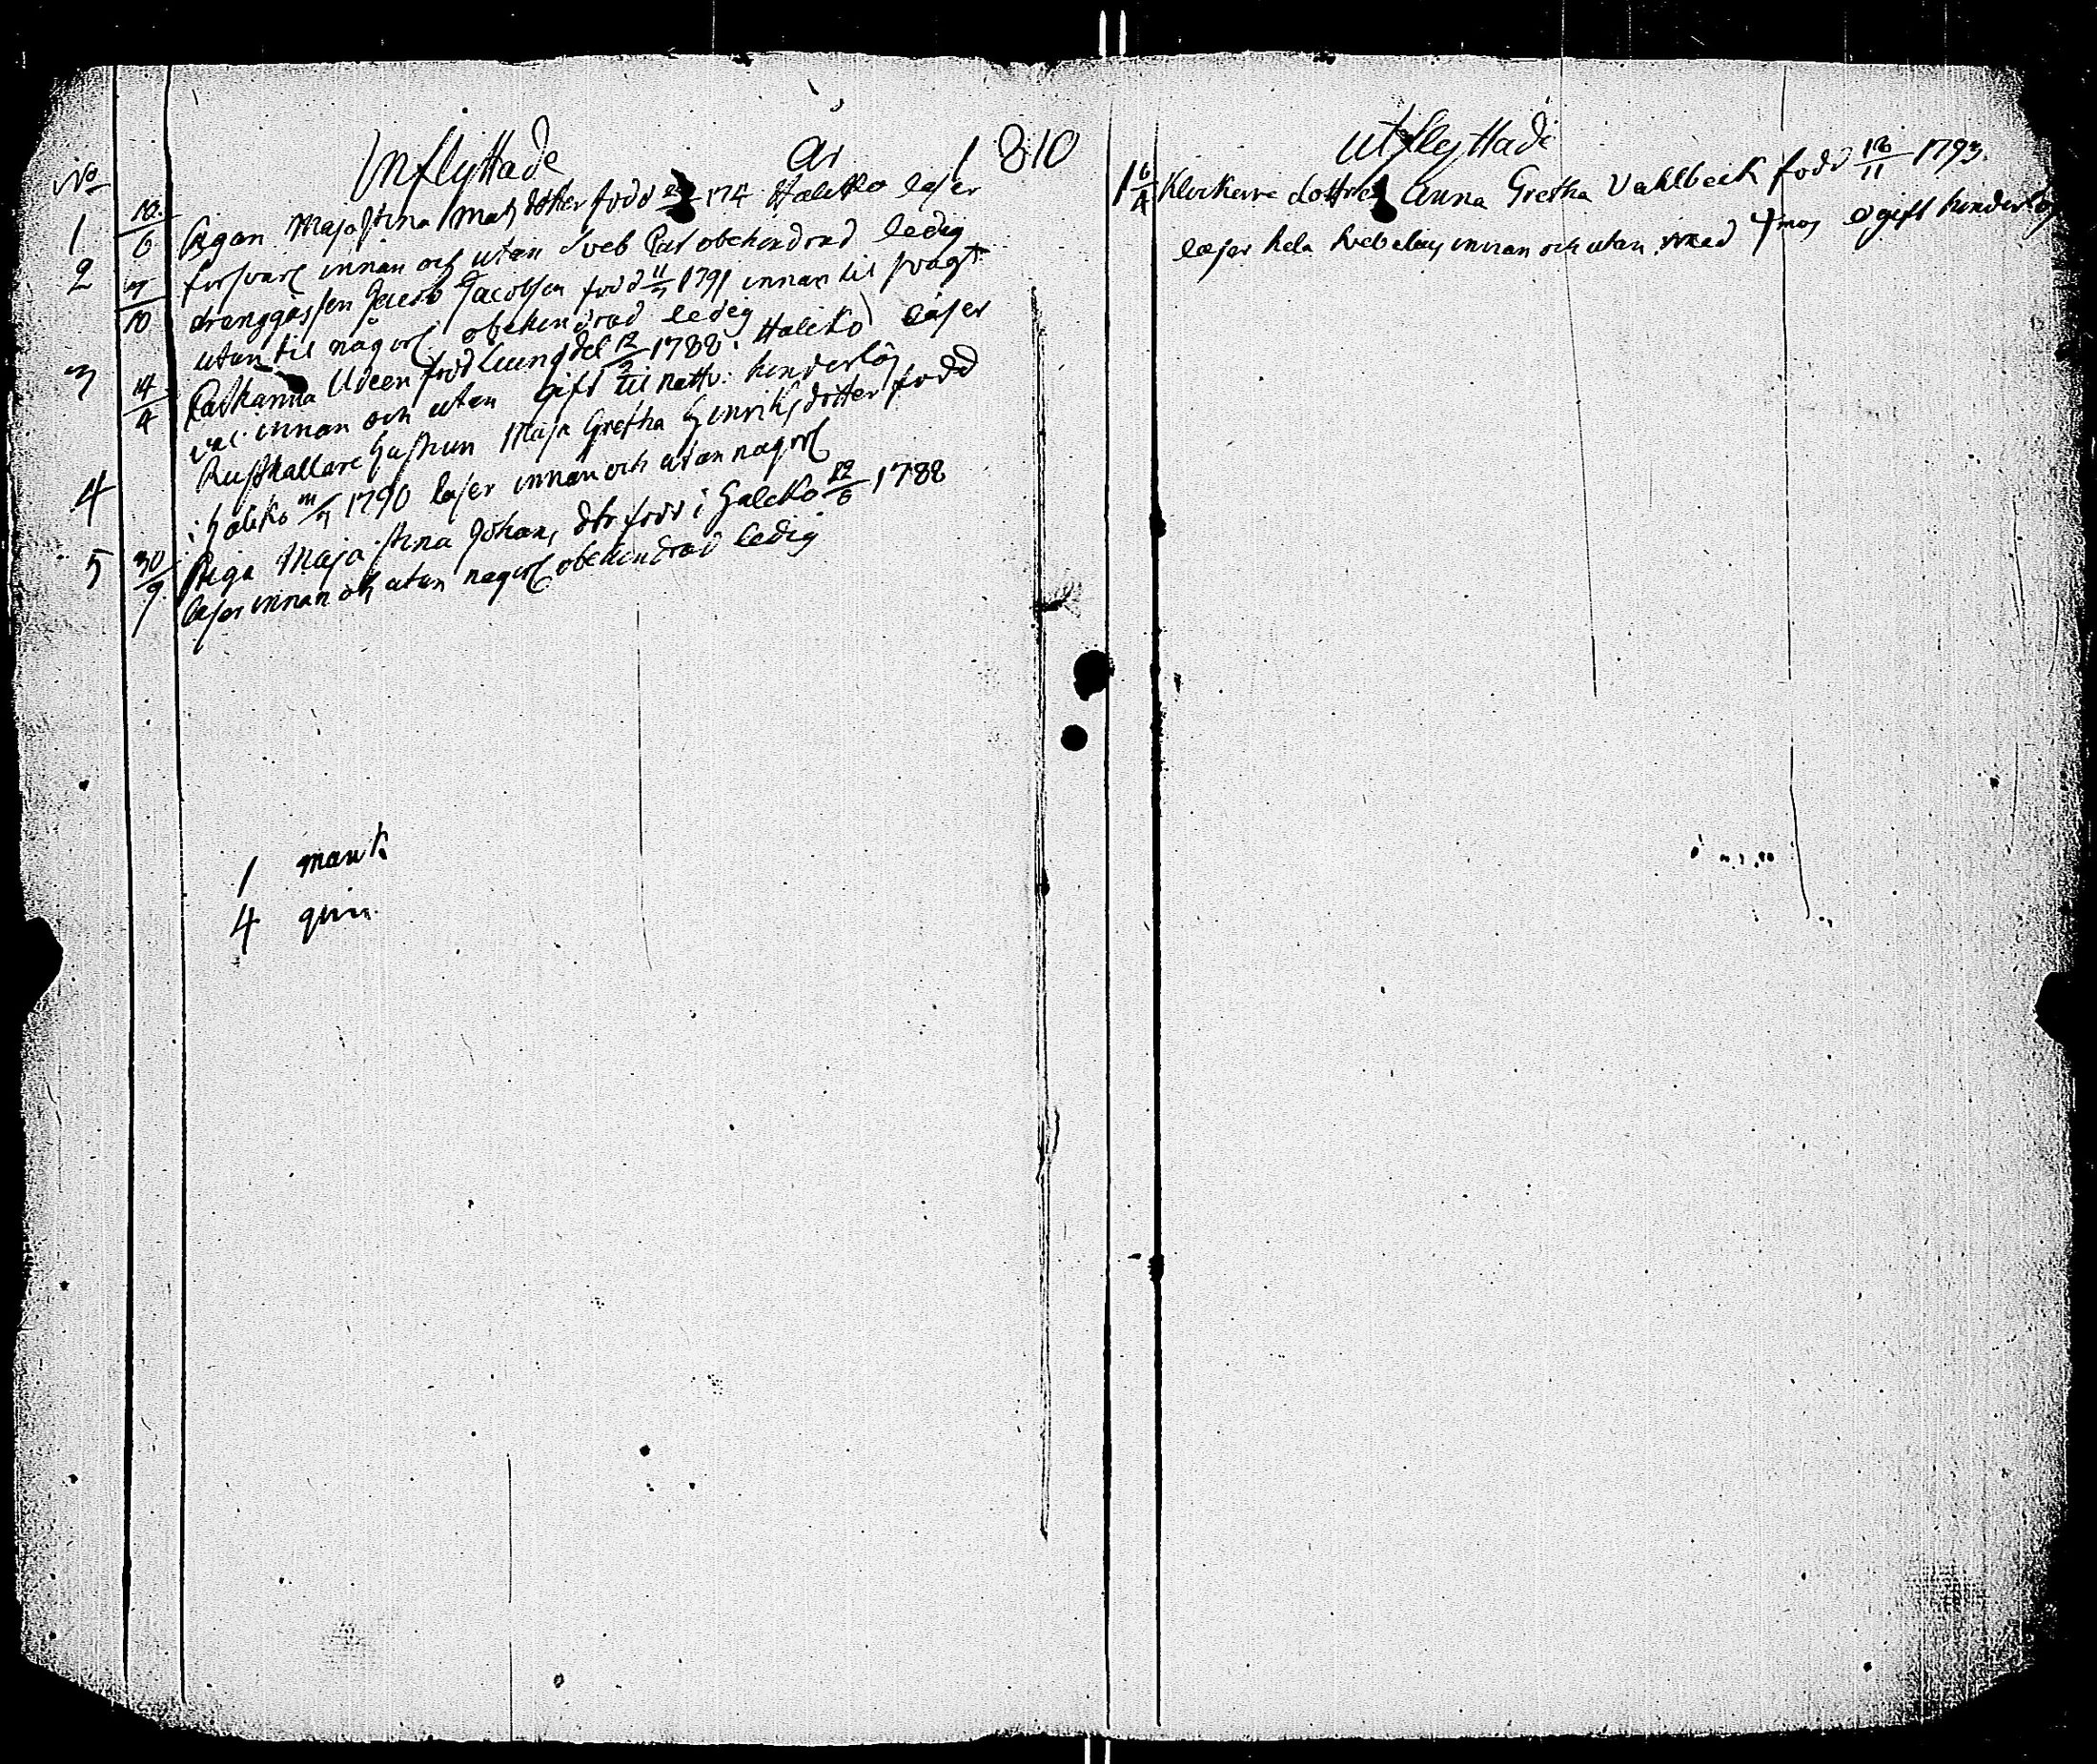 No Inflyttade År 1810
1 18/6 Pigan Maja Stina Mats dotter född 174 Haliko läser
försvarl innan och utan obehindrad ledig
2 7/10 drenggåssen Jacob Jacobsson född 11/7 1791 innan til svagt
utan til någorl. obehindrad ledig
3 14/4 Udeen född 12/2 1788. Haliko läser
väl innan och utan gift til nattv: hinderlös
4 Rusthållare hustrun Maja Gretha Hinriksdotter född
i Haliko 1790 läser innan och utan någorl
5 30/9 Piga Maja Stina Johans dtr född i Haliko 12/6 1788
läser innan och utan någorl obehindrad ledig
1 mank
4 qvin.
Utflyttade
1 6/4 Klockare dottren Anna Gretha Vahlbeck född 18/11 1793.
läser hela innan och utan med ogift hinderlös